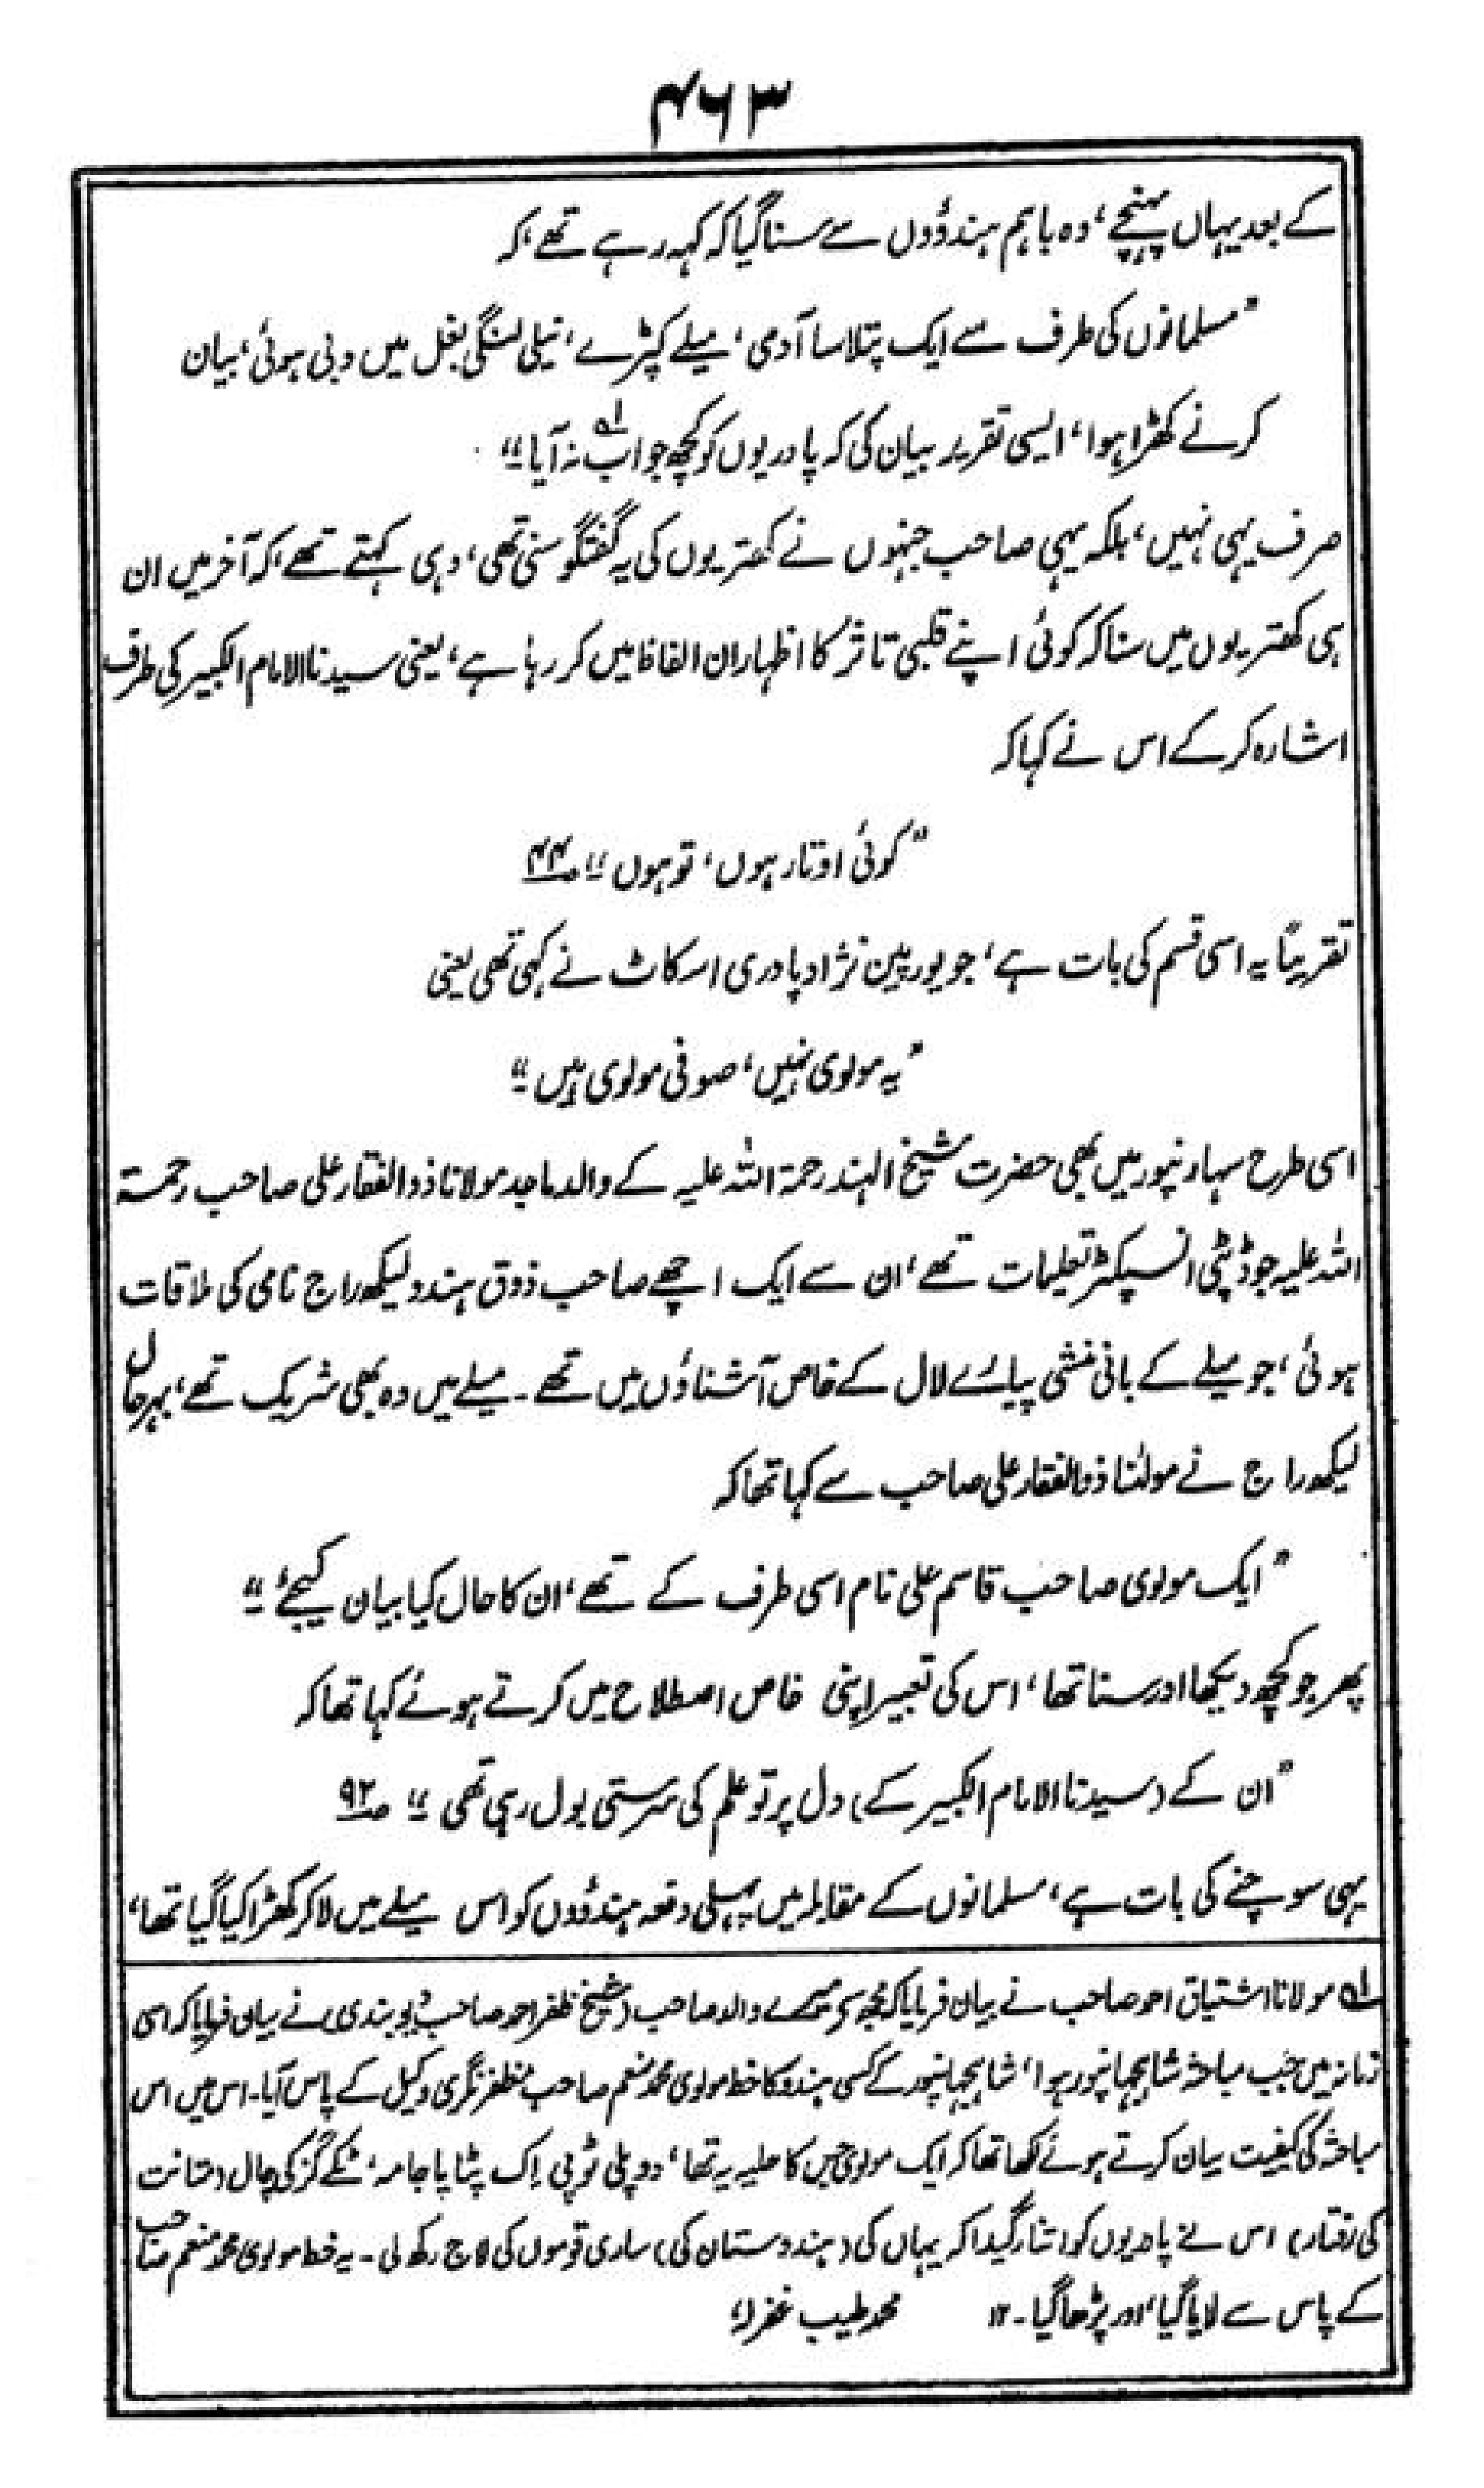 ۴۶۳
کے بعد یہاں پہنچے، وہ باہم ہندوؤں سے سنا گیا کہ کہہ رہے تھے، کہ
"مسلمانوں کی طرف سے ایک پتلا سا آدمی، میلے کپڑے، نیلی لنگی بغل میں دبی ہوئی، بیان
کرنے کھڑا ہوا، ایسی تقریر بیان کی کہ پادریوں کو کچھ جواب نہ آیا"۱ھ
صرف یہی نہیں، بلکہ یہی صاحب جنہوں نے کھتریوں کی یہ گفتگو سنی تھی، وہی کہتے تھے، کہ آخر میں ان
ہی کھتریوں میں سنا کہ کوئی اپنے قلبی تاثر کا اظہار ان الفاظ میں کر رہا ہے، یعنی سیدنا الامام الکبیر کی طرف
اشارہ کر کے اس نے کہا کہ
"کوئی اوتار ہوں، تو ہوں" ص۴۴
تقریباً یہ اسی قسم کی بات ہے، جو یورپین نژاد پادری اسکاٹ نے کہی تھی یعنی
"یہ مولوی نہیں، صوفی مولوی ہیں"
اسی طرح سہارنپور میں بھی حضرت شیخ الہند رحمۃ اللہ علیہ کے والد ماجد مولانا ذوالفقار علی صاحب رحمۃ
اللہ علیہ جو ڈپٹی انسپکٹر تعلیمات تھے، ان سے ایک اچھے صاحب ذوق ہندو لیکھ راج نامی کی ملاقات
ہوئی، جو میلے کے بانی منشی پیارے لال کے خاص آشناؤں میں تھے۔ میلے میں وہ بھی شریک تھے، بہرحال
لیکھ راج نے مولٰنا ذوالفقار علی صاحب سے کہا تھا کہ
"ایک مولوی صاحب قاسم علی نام اسی طرف کے تھے، ان کا حال کیا بیان کیجئے"
پھر جو کچھ دیکھا اور سنا تھا، اس کی تعبیر اپنی خاص اصطلاح میں کرتے ہوئے کہا تھا کہ
"ان کے (سیدنا الامام الکبیر کے) دل پر تو علم کی سرستی بول رہی تھی" ص۹۲
یہی سوچنے کی بات ہے، مسلمانوں کے مقابلہ میں پہلی دفعہ ہندوؤں کو اس میلے میں لا کر کھڑا کیا گیا تھا،
۱ھ مولانا اشتیاق احمد صاحب نے بیان فرمایا کہ مجھ سے میرے والد صاحب (شیخ ظفر احمد صاحب دیوبندی) نے بیان فرمایا کہ اسی
زمانہ میں جب مباحثہ شاہجہانپور ہوا، شاہجہانپور کے کسی ہندو کا خط مولوی محمد منعم صاحب مظفرنگری وکیل کے پاس آیا۔ اس میں اس
مباحثہ کی کیفیت بیان کرتے ہوئے لکھا تھا کہ ایک مولوی جس کا حلیہ یہ تھا، دو پلی ٹوپی اک پٹا پاجامہ، ٹکے گز کی چال (متانت
کی رفتار) اس نے پادریوں کو اتنا رگیدا کہ یہاں کی (ہندوستان کی) ساری قوموں کی لاج رکھ لی۔ یہ خط مولوی محمد منعم صاحب
کے پاس سے لایا گیا، اور پڑھا گیا۔ ۱۲ محمد طیب غفرلہٗ